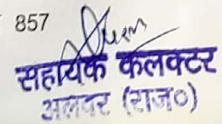 857
सहायक कलक्टर
अलवर (राज०)